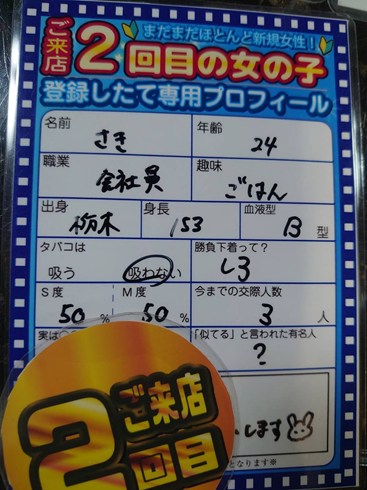 まだまだほとんど新規女性！
ご来店2回目の女の子
登録したて専用プロフィール
名前 さき 年齢 24
職業 会社員 趣味 ごはん
出身 栃木 身長 153 血液型 B 型
タバコは 吸う 吸わない 勝負下着って？ しろ
S度 50 % M度 50 % 今までの交際人数 3 人
実は 「似てる」と言われた有名人 ？
します
ご来店
2回目
となります※